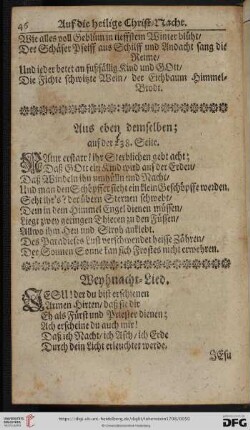 96 Auf die heilige Christ-Nacht.
Wie alles voll Geblüm in tieffstem Winter blüht/
Der Schäfer Pfeiff aus Schilff und Andacht sang die
Reime/
Und jeder betet an fußfällig Kind und GOtt/
Die Fichte schwitzte Wein/ der Eichbaum Himmel-
Brodt.
Aus eben demselben;
auf der 238. Seite.
erstarrt ihr Sterblichen gebt acht;
Daß GOtt ein Kind wird auf der Erden/
Daß Windeln ihn umhülln und Nacht/
Und man den Schöpffer sieht ein klein Geschöpffe werden.
Seht ihr's? der übern Sternen schwebt/
Dem in dem Himmel Engel dienen müssen/
Liegt zwey geringen Thieren zu den Füssen/
Allwo ihm Heu und Stroh anklebt.
Des Paradieses Lust verschwendet heisse Zähren/
Der Sonnen Sonne kan sich Frostes nicht erwehren.
Weyhnacht-Lied.
JESU! der du bist erschienen
Armen Hirten/ daß sie dir
Eh als Fürst und Priester dienen;
Ach erscheine du auch mir!
Daß ich Nacht/ ich Asch/ ich Erde
Durch dein Licht erleuchtet werde.
JEsu
https://digi.ub.uni-heidelberg.de/diglit/
DFG